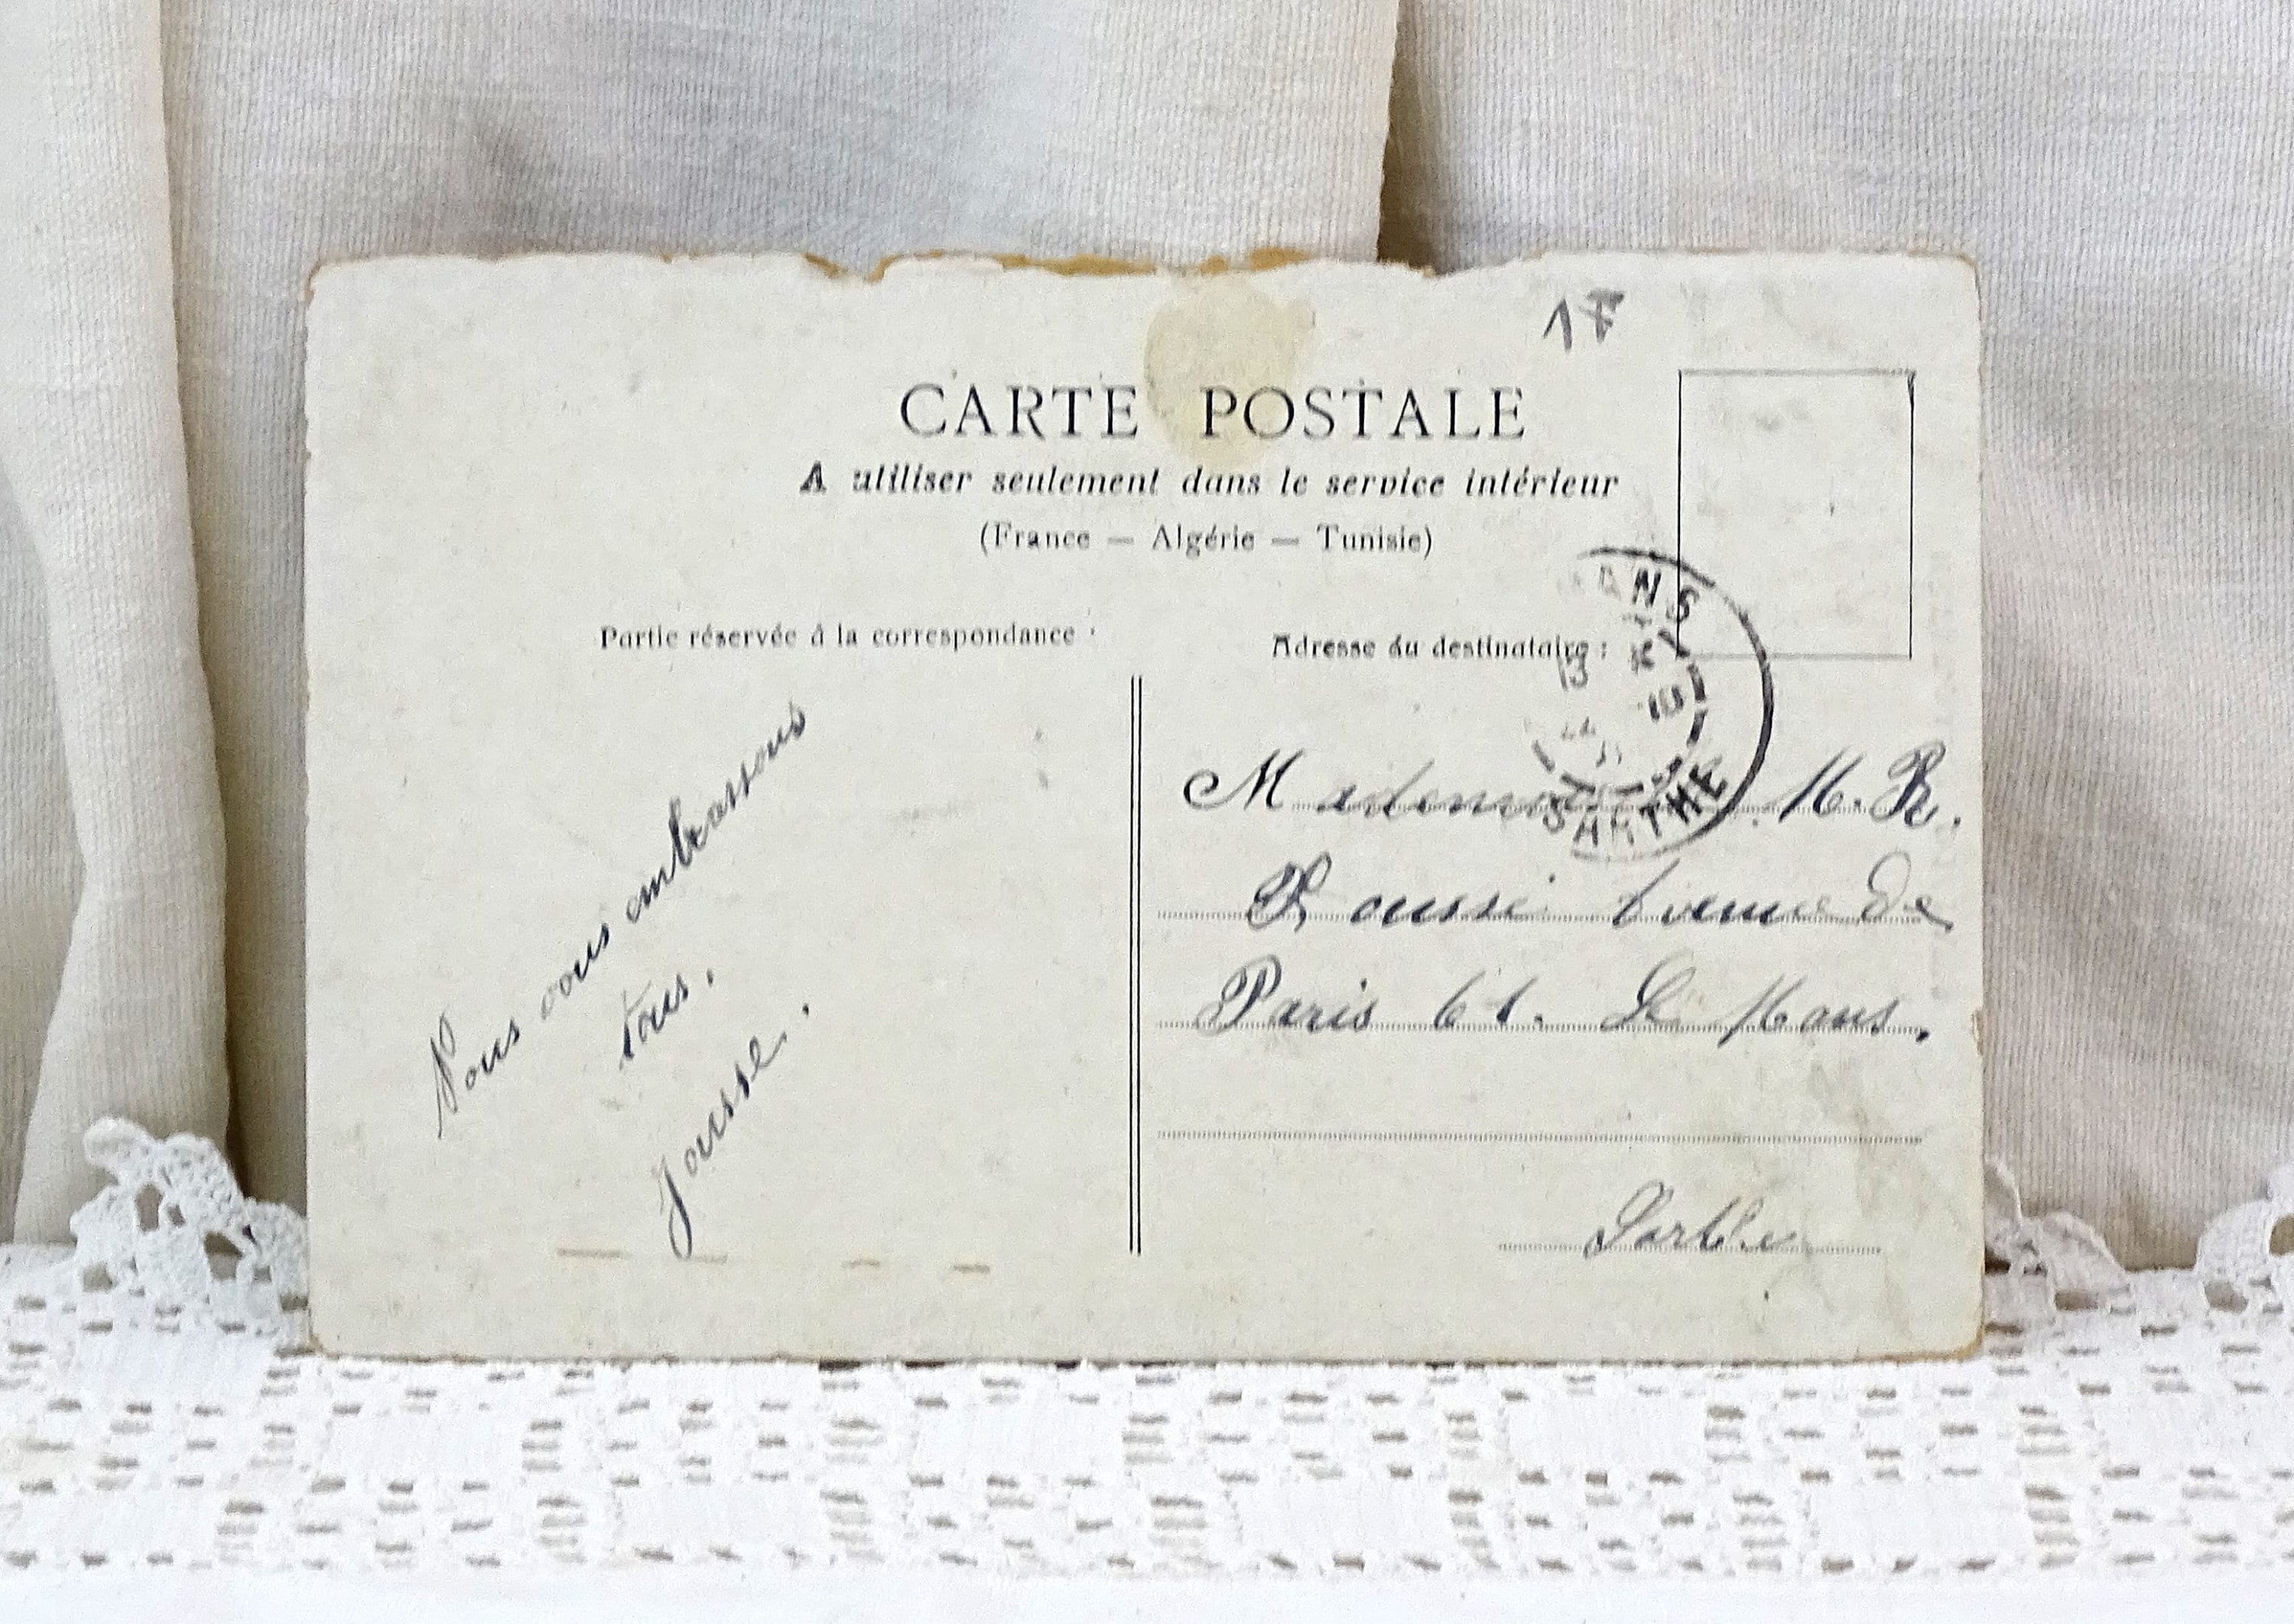 CARTE POSTALE
A utiliser seulement dans le service intérieur
(France — Algérie — Tunisie)
Partie réservée à la correspondance :
Adresse du destinataire :
Nous vous embrassons
tous.
Jousse.
Mademoiselle M. R.
Avenue de
Paris 61. Le Mans.
Sarthe
SARTHE